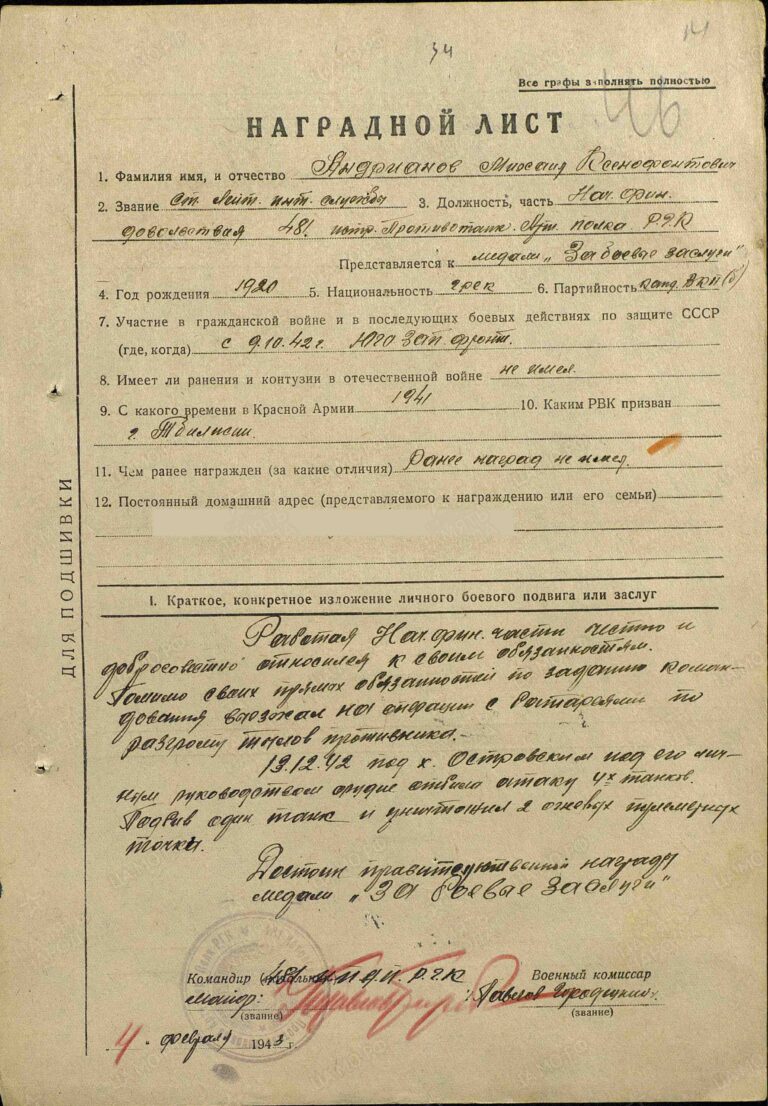 34
14
Все графы заполнять полностью
46
НАГРАДНОЙ ЛИСТ
1. Фамилия имя, и отчество Андрианов Михаил Ксенофонтович
2. Звание Ст. Лейт. инт. службы 3. Должность, часть Нач. фин.
довольствия 481 истр. Противотанк. Арт. полка РГК
Представляется к медали "За боевые заслуги"
4. Год рождения 1920 5. Национальность грек 6. Партийность канд. ВКП(б)
7. Участие в гражданской войне и в последующих боевых действиях по защите СССР
(где, когда) с 9.10.42 г. Юго Зап. фронт.
8. Имеет ли ранения и контузии в отечественной войне не имел.
9. С какого времени в Красной Армии 1941 10. Каким РВК призван
г. Тбилисии.
11. Чем ранее награжден (за какие отличия) Ранее наград не имел.
12. Постоянный домашний адрес (представляемого к награждению или его семьи)
ДЛЯ ПОДШИВКИ
I. Краткое, конкретное изложение личного боевого подвига или заслуг
Работая Нач. фин. части честно и
добросовестно относился к своим обязанностям.
Помимо своих прямых обязанностей по заданию коман-
дования выезжал на операции с батареями по
разгрому тылов противника.
19.12.42 под х. Островским под его лич-
ным руководством орудие отбило атаку 4х танков.
Подбив один танк и уничтожил 2 огневых пулеметных
точки.
Достоин правительственной награды
медали "За боевые заслуги"
Командир 481 ИПТАП РГК Военный комиссар
Майор: Павлов Городецкий
(звание) (звание)
4 февраля 1943 г.